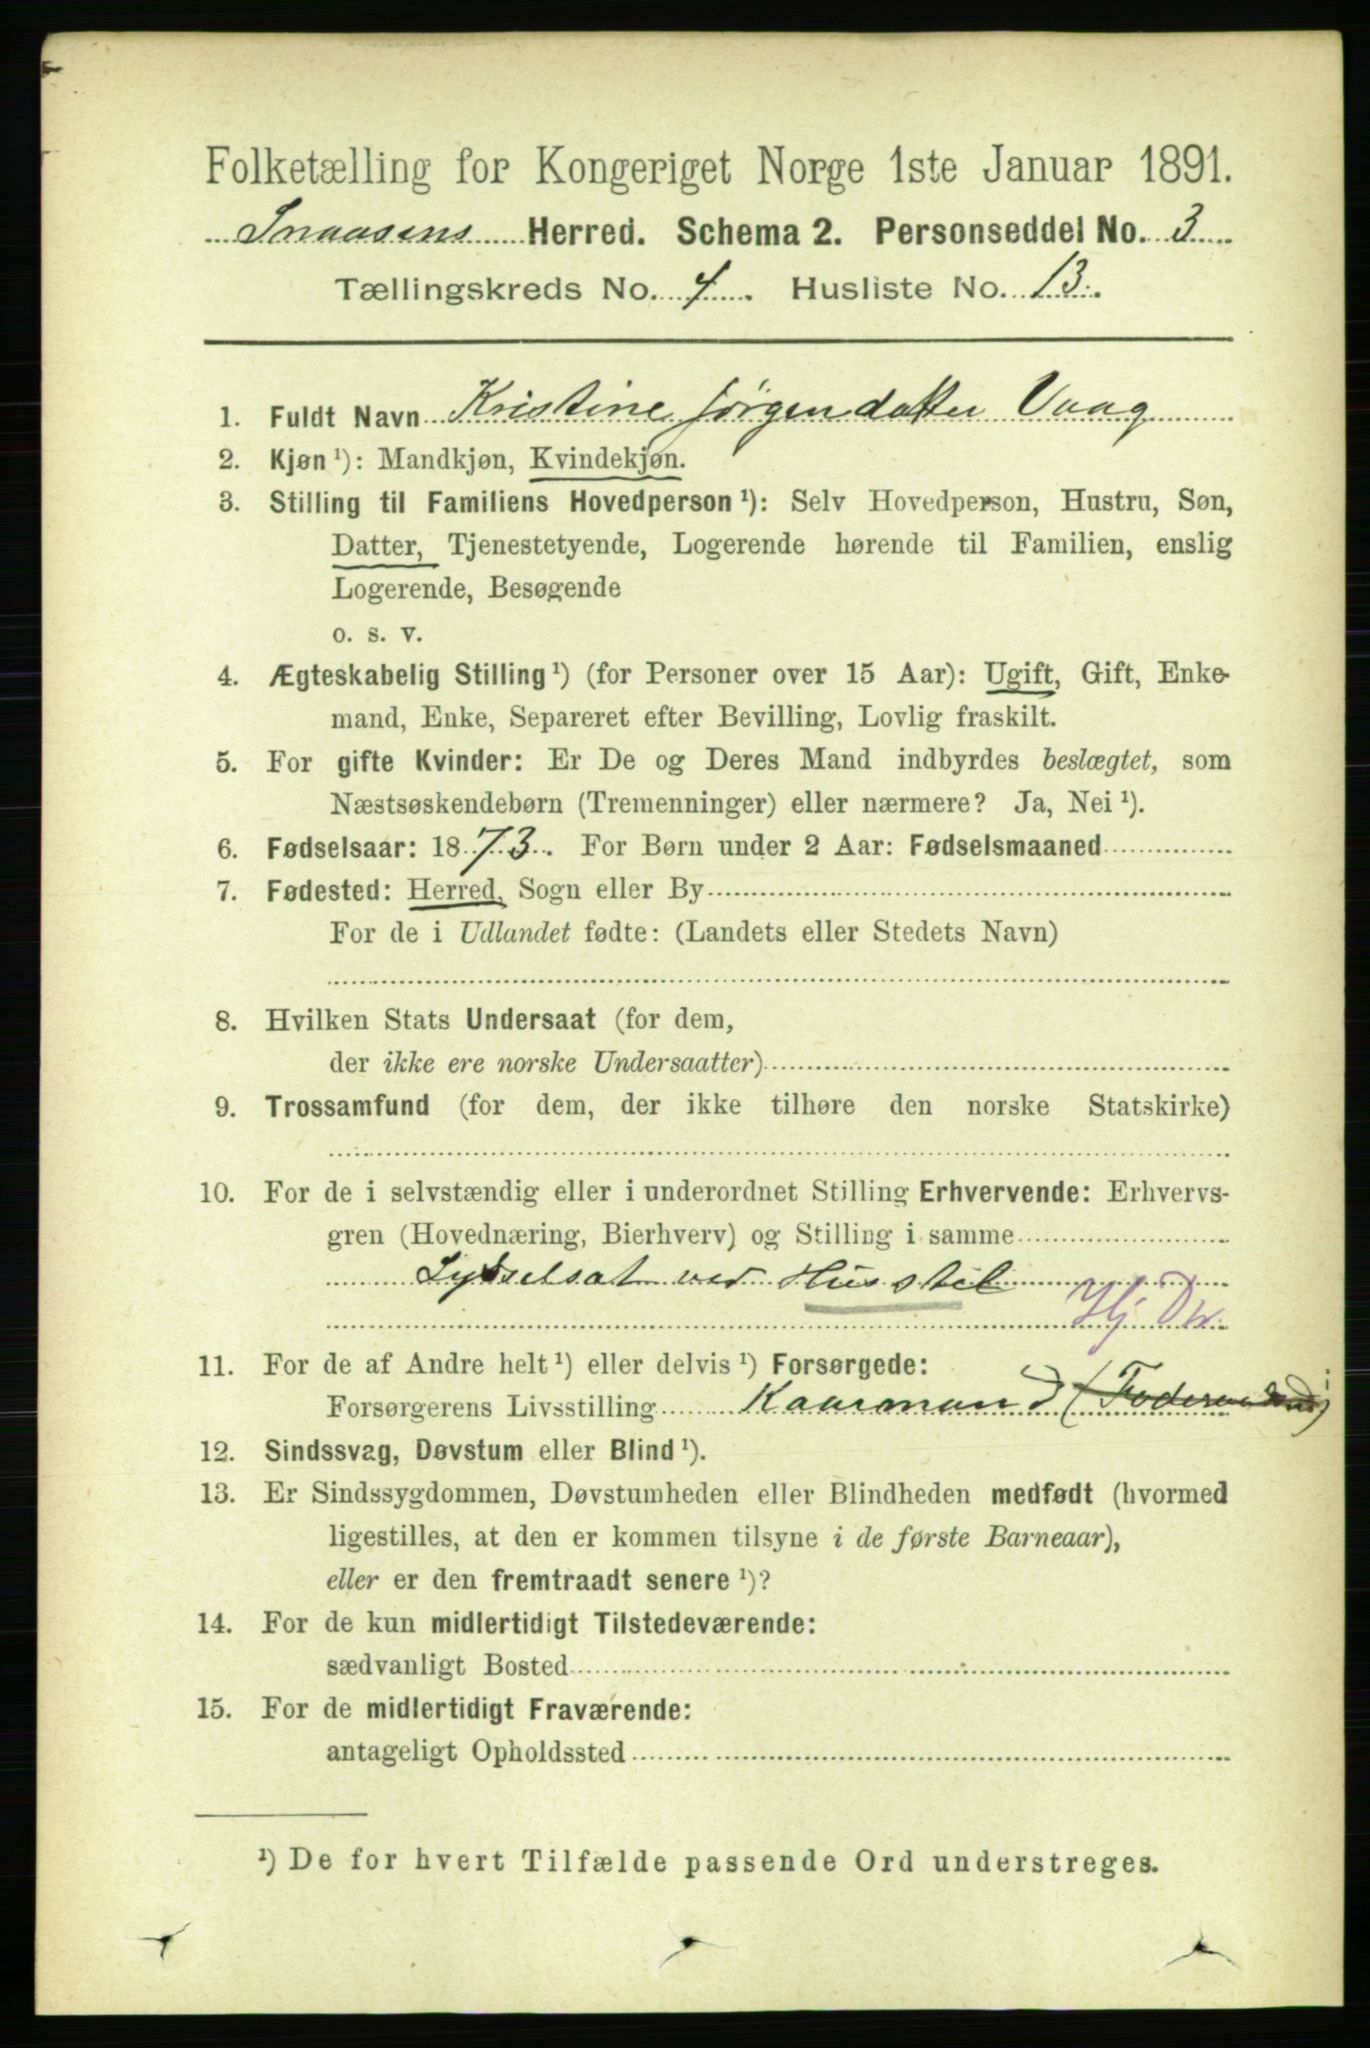 Folketælling for Kongeriget Norge 1ste Januar 1891.
Snaasens Herred. Schema 2. Personseddel No. 3
Tællingskreds No. 4. Husliste No. 13.
1. Fuldt Navn Kristine Jørgendatter Vaag
2. Kjøn ¹): Mandkjøn, Kvindekjøn.
3. Stilling til Familiens Hovedperson ¹): Selv Hovedperson, Hustru, Søn,
Datter, Tjenestetyende, Logerende hørende til Familien, enslig
Logerende, Besøgende
o. s. v.
4. Ægteskabelig Stilling ¹) (for Personer over 15 Aar): Ugift, Gift, Enke-
mand, Enke, Separeret efter Bevilling, Lovlig fraskilt.
5. For gifte Kvinder: Er De og Deres Mand indbyrdes beslægtet, som
Næstsøskendebørn (Tremenninger) eller nærmere? Ja, Nei ¹).
6. Fødselsaar: 1873. For Børn under 2 Aar: Fødselsmaaned
7. Fødested: Herred, Sogn eller By
For de i Udlandet fødte: (Landets eller Stedets Navn)
8. Hvilken Stats Undersaat (for dem,
der ikke ere norske Undersaatter)
9. Trossamfund (for dem, der ikke tilhøre den norske Statskirke)
10. For de i selvstændig eller i underordnet Stilling Erhvervende: Erhvervs-
gren (Hovednæring, Bierhverv) og Stilling i samme
Sysselsat ved Husstel
Hj. Dtr.
11. For de af Andre helt ¹) eller delvis ¹) Forsørgede:
Forsørgerens Livsstilling Kaarmand
12. Sindssvag, Døvstum eller Blind ¹).
13. Er Sindssygdommen, Døvstumheden eller Blindheden medfødt (hvormed
ligestilles, at den er kommen tilsyne i de første Barneaar),
eller er den fremtraadt senere ¹)?
14. For de kun midlertidigt Tilstedeværende:
sædvanligt Bosted
15. For de midlertidigt Fraværende:
antageligt Opholdssted
¹) De for hvert Tilfælde passende Ord understreges.